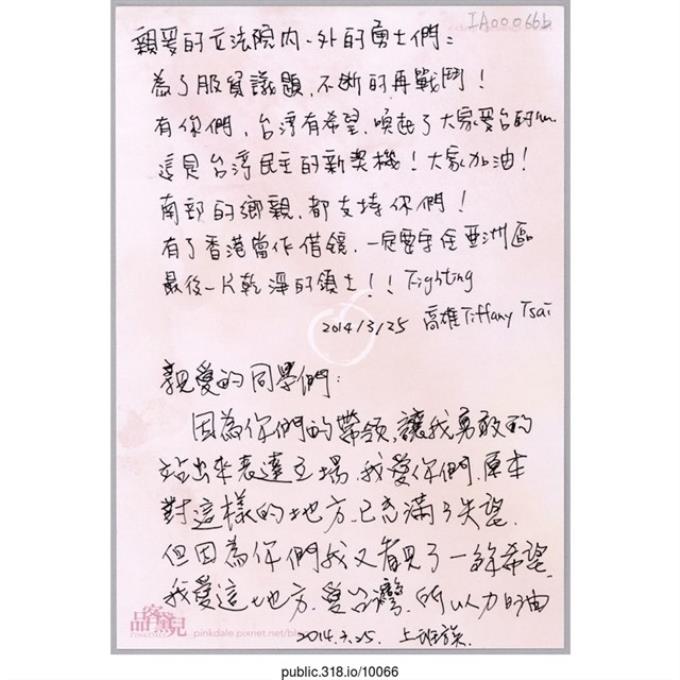 IA00066b
親愛的立法院內、外的勇士們：
為了服貿議題，不斷的再戰鬥！
有你們，台湾有希望，喚起了大家愛台的心
這是台湾民主的新契機！大家加油！
南部的鄉親，都支持你們！
有了香港當作借鏡，一定要守住亞洲區
最後一片乾淨的領土！！Fighting
2014/3/25 高雄Tiffany Tsai
親愛的同學們：
因為你們的帶領，讓我勇敢的
站出來表達立場，我愛你們，原本
對這樣的地方，已充滿了失望，
但因為你們我又看見了一絲希望，
我愛這地方，愛台灣，所以加油
2014.3.25. 上班族
品客黛兒
PINKDALE
pinkdale.pixnet.net/blog
public.318.io/10066